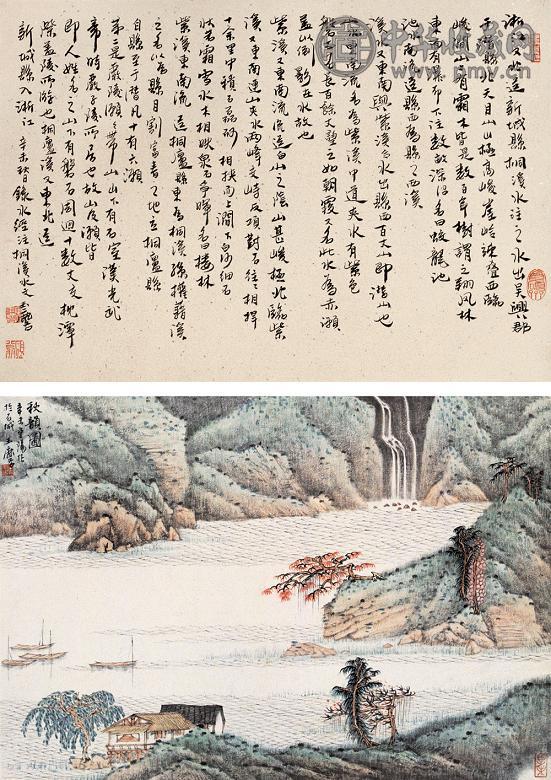 浙江又北逕新城縣桐溪水注之水出吳興郡
於潛縣北天目山山極高峻崖嶺竦疊西臨
峻澗山上有霜木皆是數百年樹謂之翔鳳林
東面有瀑布下注數畝深沼名曰蛟龍池
池水南流逕縣西為縣之西溪
溪水又東南與紫溪合水出縣西百丈山即潛山也
山水東南流名為紫溪中道夾水有紫色
磐石石長百餘丈望之如朝霞又名此水為赤瀨
蓋以倒影在水故也
紫溪又東南流逕白石山之陰山甚峻極北臨紫
溪又東南連山夾水兩峰交峙反項對石往往相捍
十餘里中積石磊砢相挾而上澗下白沙細石
狀若霜雪水木相映泉石爭暉名曰樓林
紫溪東南流逕桐廬縣東為桐溪孫權藉溪
之名以為縣目割富春之地立桐廬縣
自縣至于潛凡十有六瀨
第二是嚴陵瀨瀨帶山山下有石室漢光武
帝時嚴子陵所居也故山及瀨皆
即人姓名之山下有磐石周迴十數丈交枕潭
際蓋陵所游也桐廬溪又東北逕
新城縣入浙江 辛未秋錄水經注桐溪水文
秋韻圖
中华收藏网